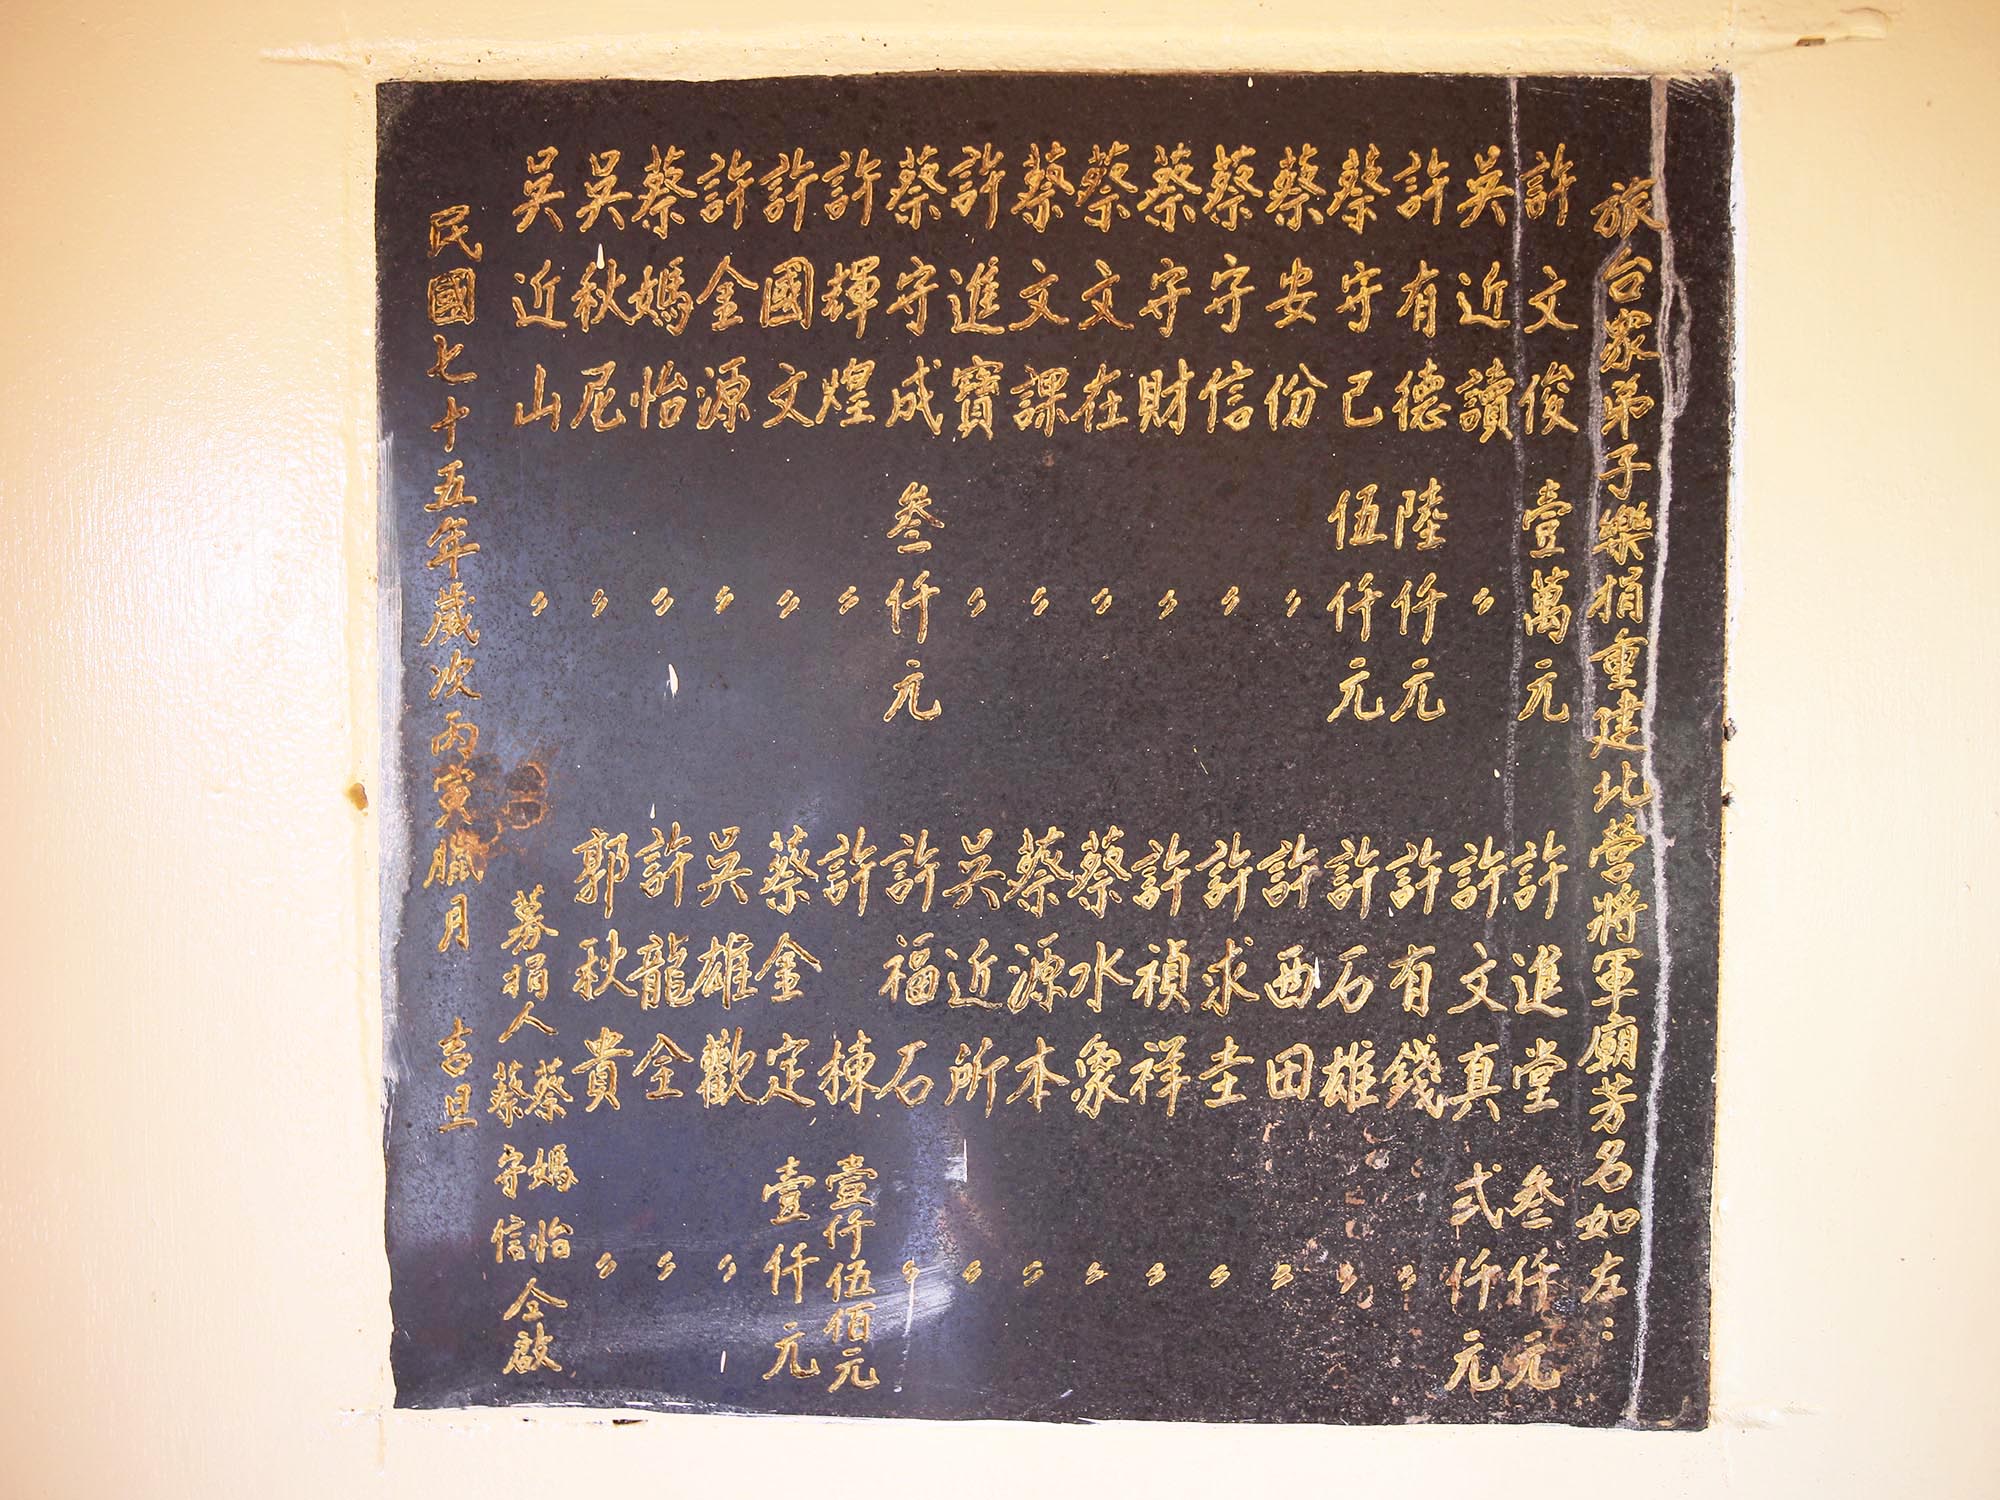 旅台眾弟子樂捐重建北營將軍廟芳名如左：
許文俊 壹萬元
吳近讀 〃
許有德 陸仟元
蔡守己 伍仟元
蔡安份 〃
蔡守信 〃
蔡守財 〃
蔡文在 〃
蔡文課 〃
許進寶 〃
蔡守成 叁仟元
許輝煌 〃
許國文 〃
許金源 〃
蔡媽怡 〃
吳秋尼 〃
吳近山 〃
許進堂 叁仟元
許文真 弍仟元
許有錢 〃
許石雄 〃
許西田 〃
許求圭 〃
許禎祥 〃
蔡水象 〃
蔡源本 〃
吳近所 〃
許福石 〃
許棟 壹仟伍佰元
蔡金定 壹仟元
吳雄歡 〃
許龍全 〃
郭秋貴 〃
募捐人 蔡媽怡 蔡守信 仝啟
民國七十五年歲次丙寅臘月 吉旦